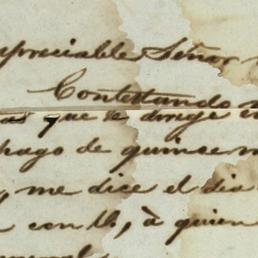 apreciable Señor
Contestando
que se dirige
pago de quince
, me dice el dia
con Ud, à quien